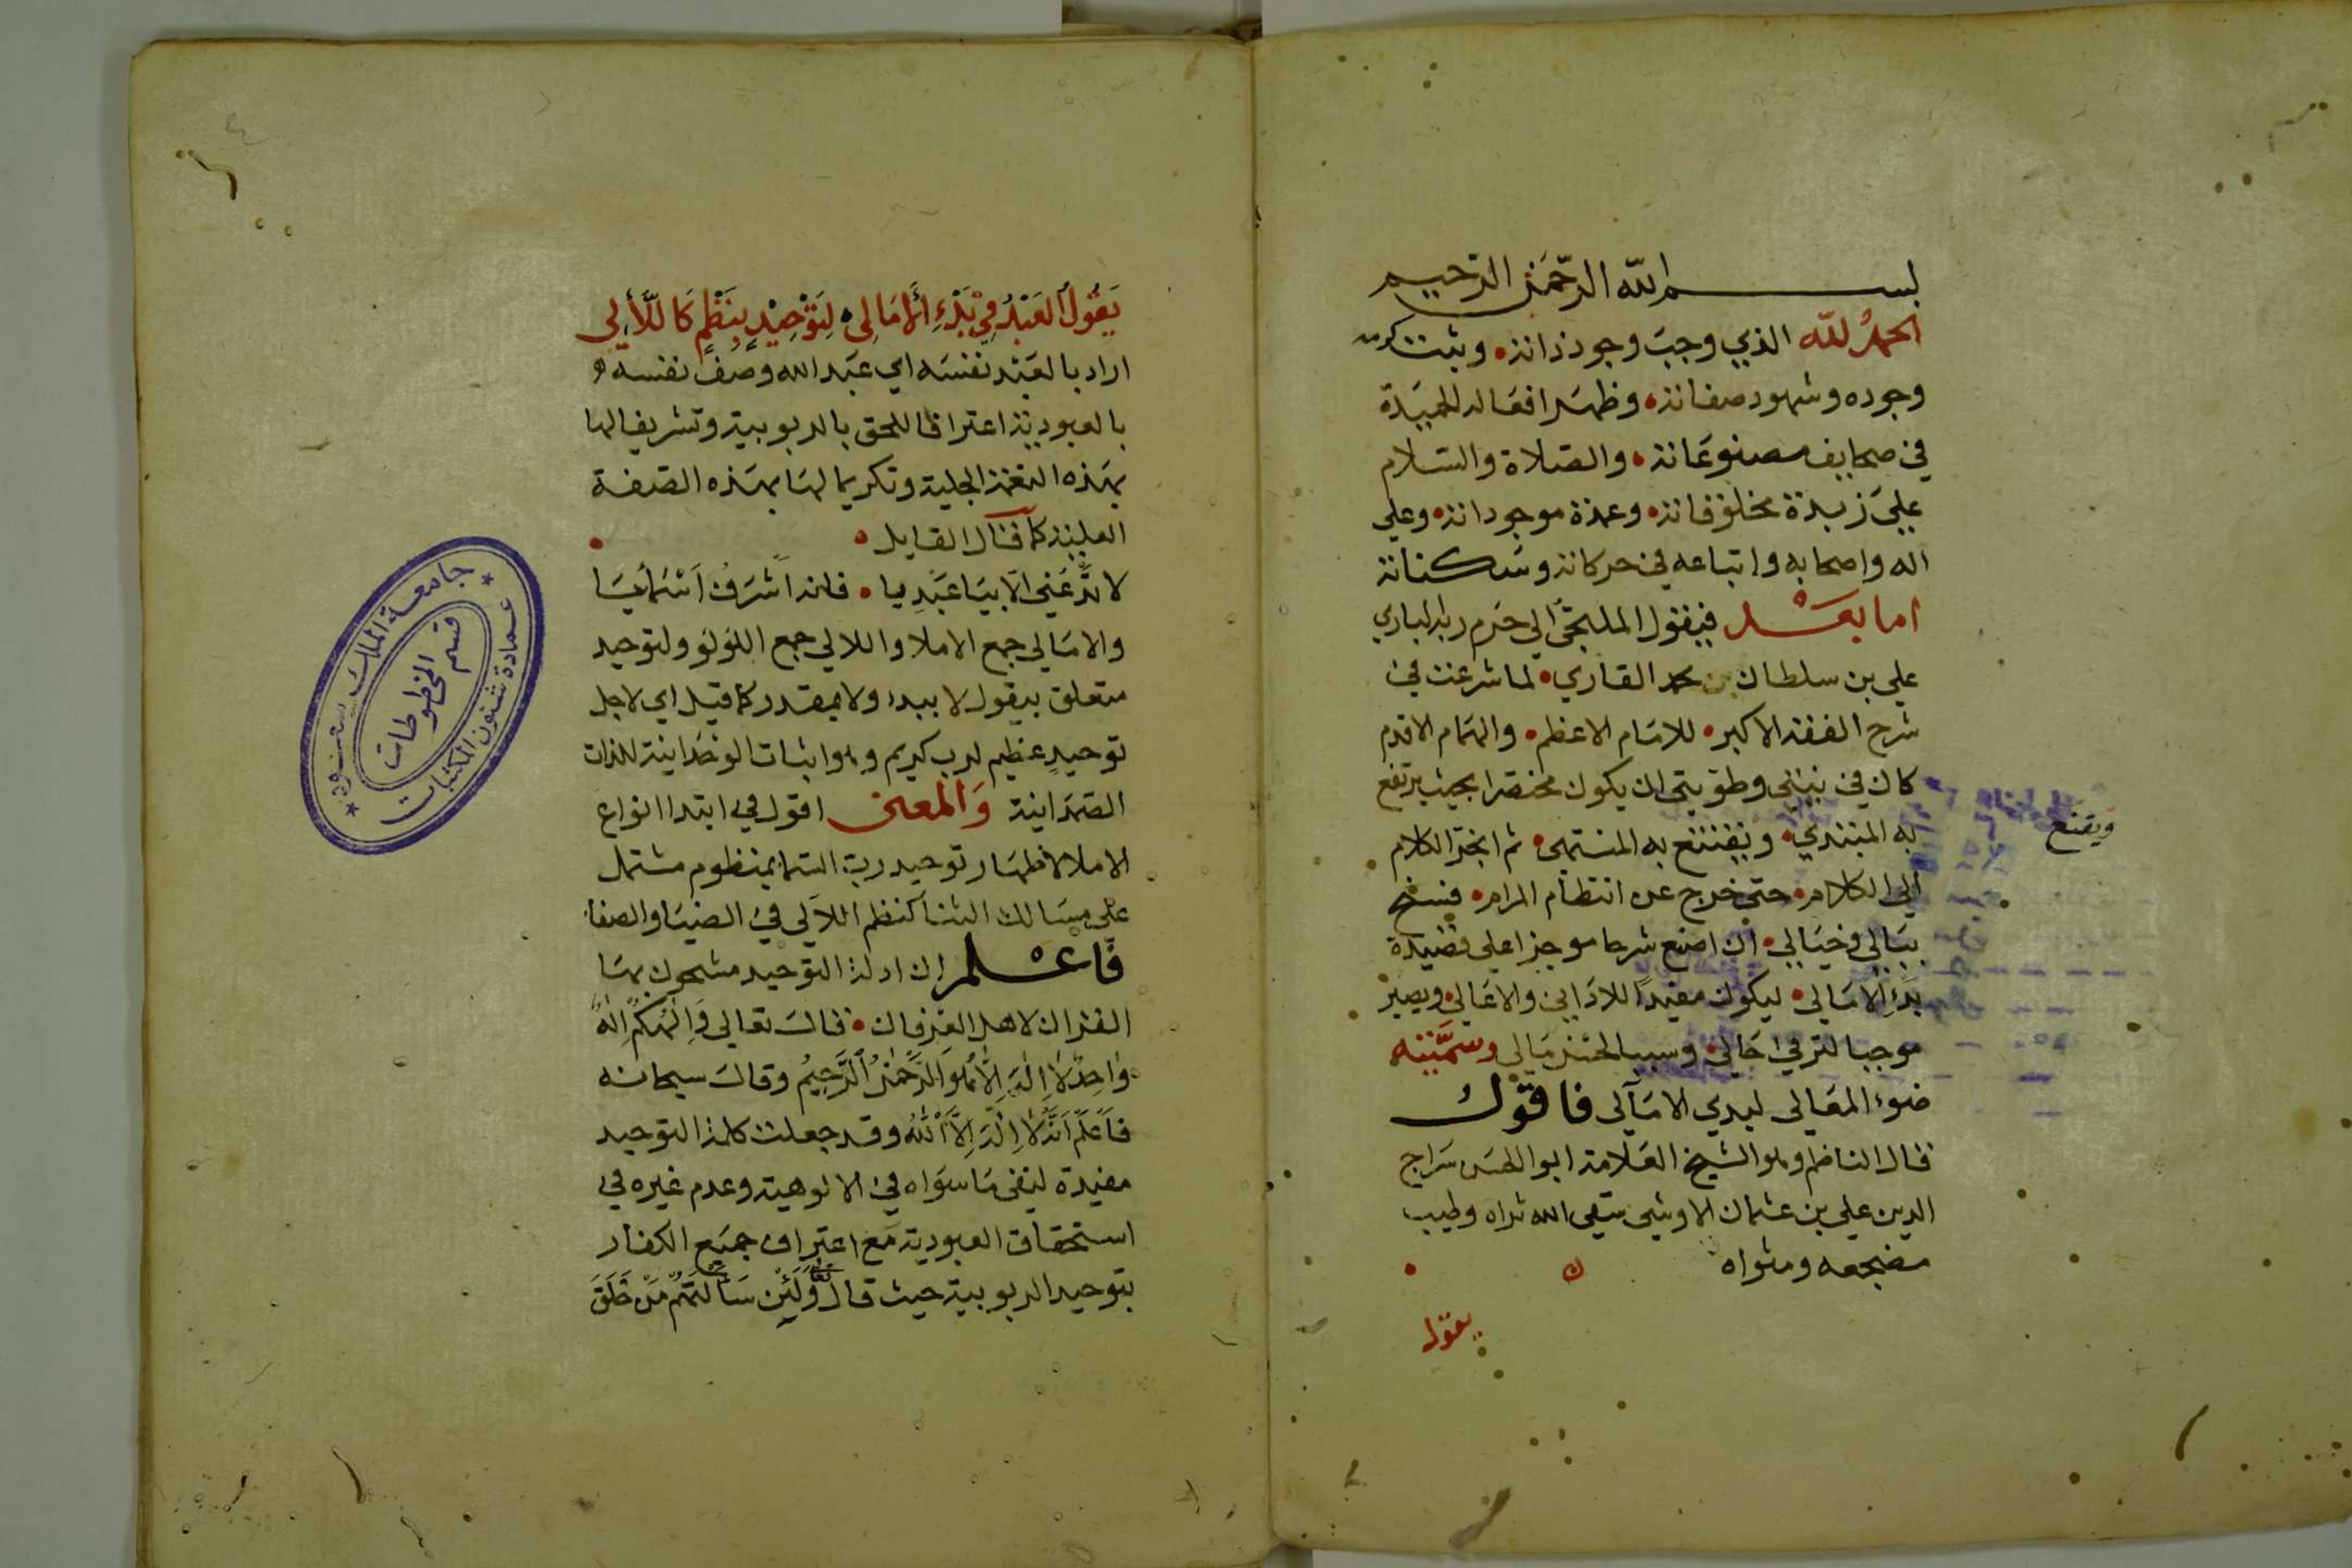 بسم الله الرحمن الرحيم
الحمد لله الذي وجب وجود ذاته • وثبت كرم
وجوده وشهود صفاته • وظهر افعاله الحميدة
في صحايف مصنوعاته • والصلاة والسلام
على زبدة مخلوقاته • وعمدة موجوداته • وعلى
اله واصحابه واتباعه في حركاته وسكناته
اما بعد فيقول الملتجئ الى حرم ربه الباري
علي بن سلطان بن محمد القاري • لما شرعت في
شرح الفقه الاكبر • للامام الاعظم • والهمام الاقدم
كان في نيتي وطويتي ان يكون مختصرا بحيث يرتفع
به المبتدي • ويقتنع به المنتهى • ثم انجر الكلام
ويقنع
الى الكلام • حتى خرج عن انتظام المرام • فسنح
ببالي وخيالي • ان اضع شرحا موجزا على قصيدة
بدء الامالي • ليكون مفيدا للاداني والاعالي • ويصير
موجبا لترقي حالي • وسببا لحسن مآلي وسميته
ضوء المعالي لبدي الامآلي فاقول
قال الناظم وهو الشيخ العلامة ابو الحسن سراج
الدين علي بن عثمان الاوشي سقى الله ثراه وطيب
مضجعه ومثواه
يقول
يَقُولُ الْعَبْدُ فِي بَدْءِ الْأَمَالِي • لِتَوْحِيْدٍ بِنَظْمٍ كَاللَّأٰلِي
اراد بالعبد نفسه اي عبد الله وصف نفسه
بالعبودية اعترافا للحق بالربوبية وتشريفا لها
بهذه النعمة الجلية وتكريما لها بهذه الصفة
العلية كما قال القايل •
لا تدعني الا بيا عبديا • فانه اشرف اسمائيا
والامالي جمع الاملا واللالي جمع اللؤلؤ ولتوحيد
متعلق بيقول لا ببدء ولا بمقدر كما قيل اي لاجل
توحيدٍ عظيم لرب كريم وهو اثبات الوحدانية للذات
الصمدانية والمعنى اقول في ابتدا انواع
الاملا لاظهار توحيد رب السما بمنظوم مشتمل
على مسالك الثنا كنظم اللآلي في الضيا والصفا
فاعلم ان ادلة التوحيد مشحون بها
القران لاهل العرفان • قال تعالى وَإِلٰهُكُمْ إِلٰهٌ
وَاحِدٌ لَا إِلٰهَ إِلَّا هُوَ الرَّحْمٰنُ الرَّحِيمُ وقال سبحانه
فَاعْلَمْ أَنَّهُ لَا إِلٰهَ إِلَّا اللهُ وقد جعلت كلمة التوحيد
مفيدة لنفي ما سواه في الالوهية وعدم غيره في
استحقاق العبودية مع اعتراف جميع الكفار
بتوحيد الربوبية حيث قال تعالى وَلَئِنْ سَأَلْتَهُمْ مَنْ خَلَقَ
جامعة الملك سعود
عمادة شئون المكتبات
قسم المخطوطات